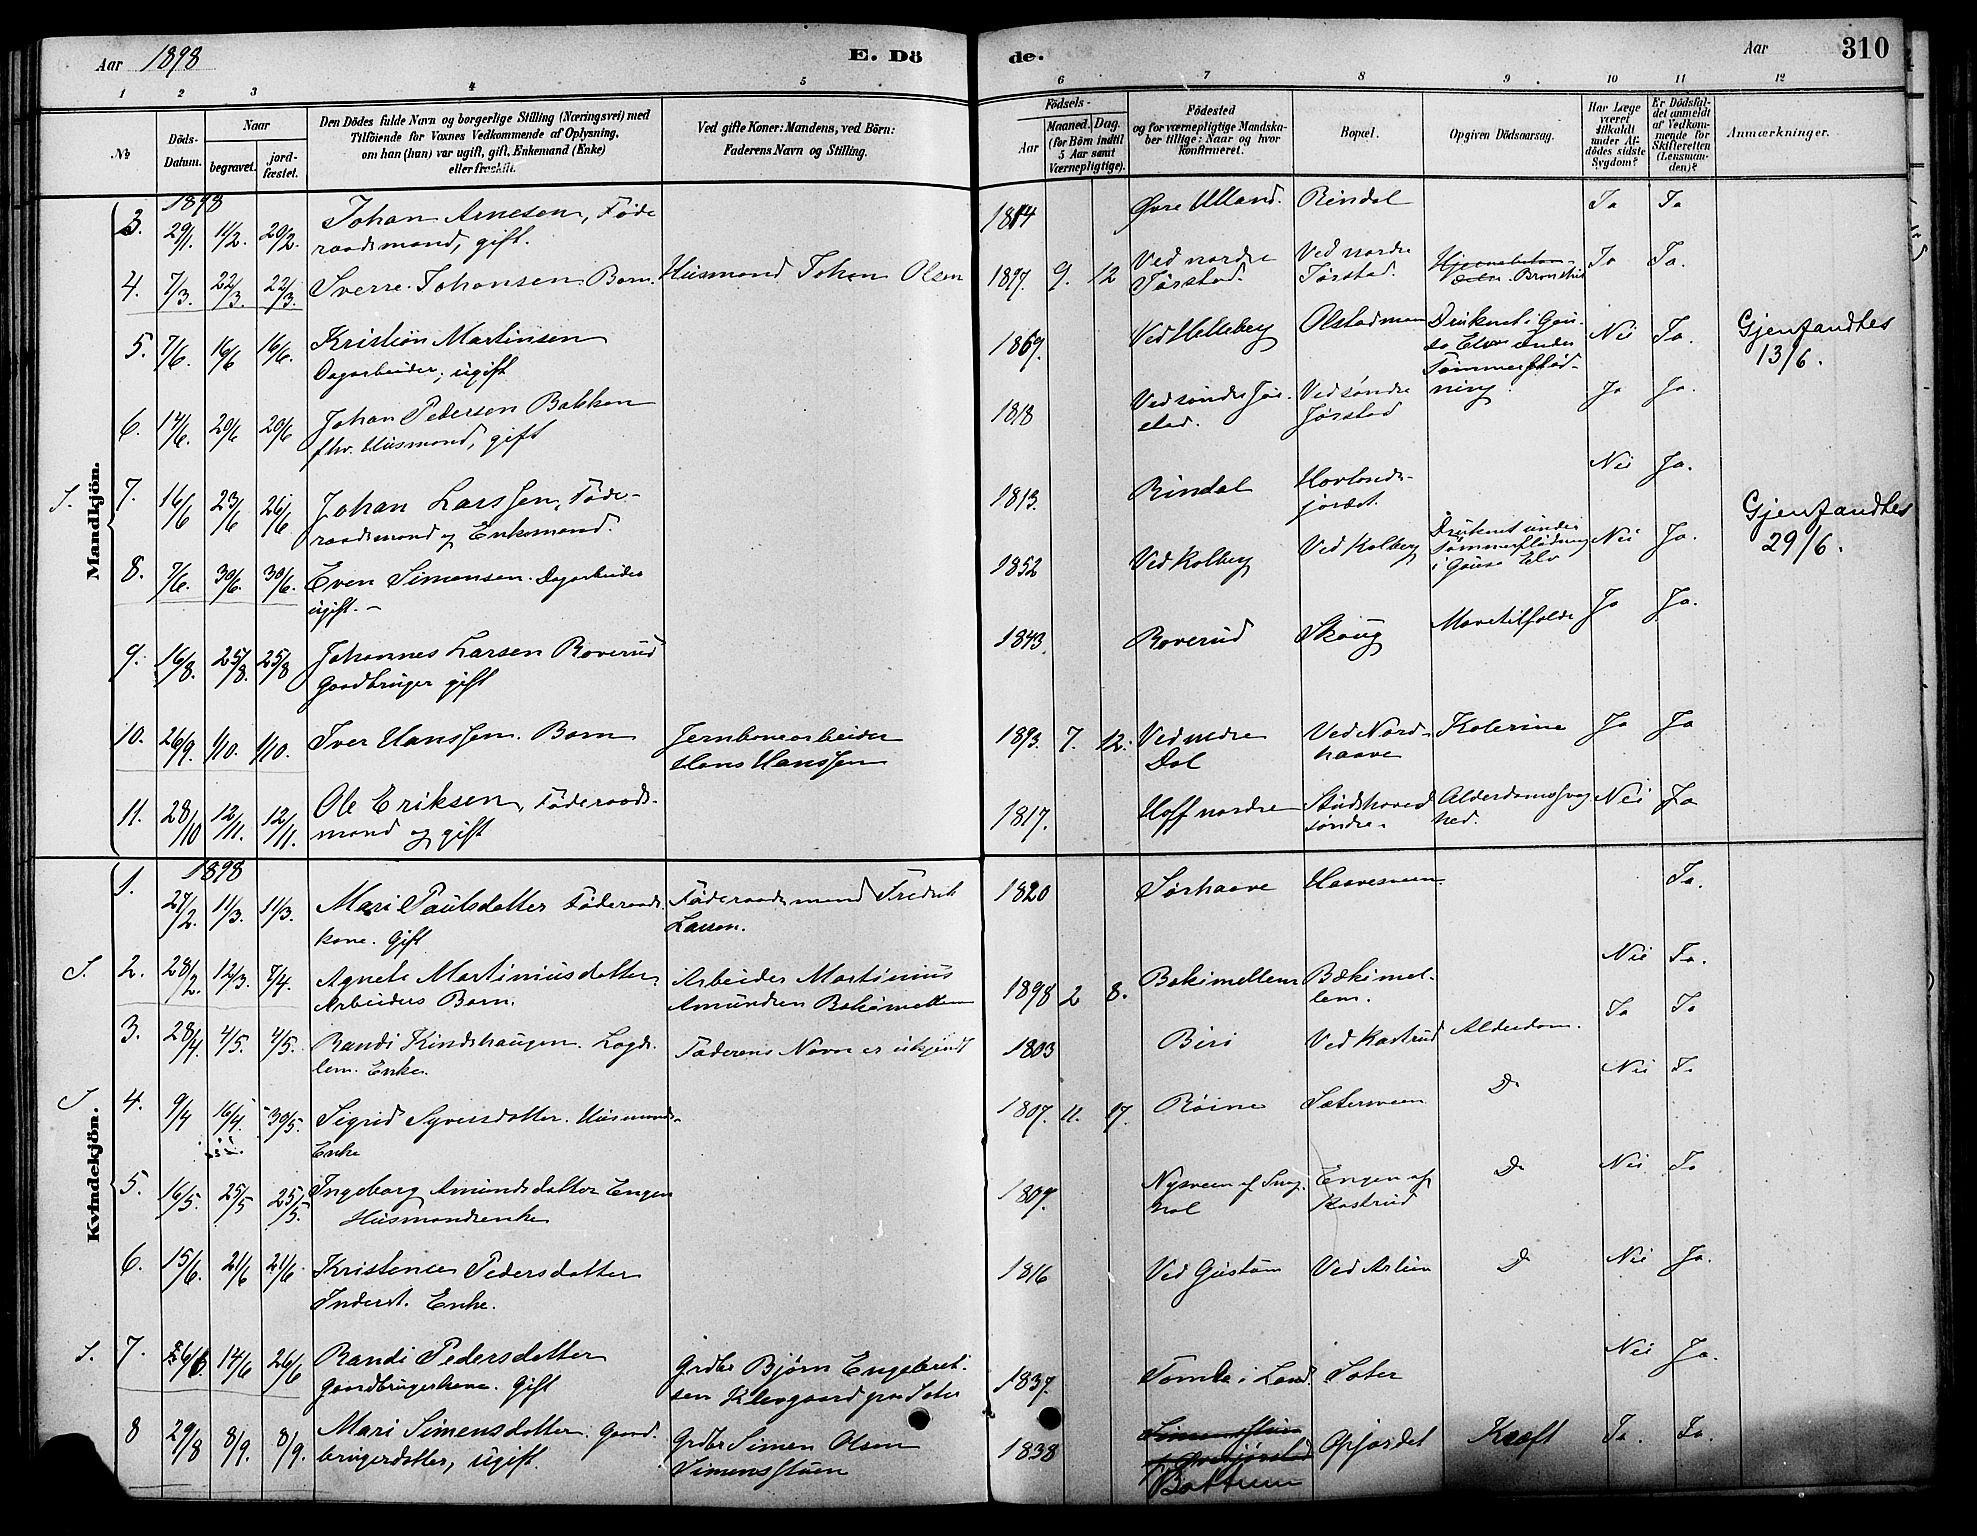 Aar 1898
E. Dö
de.
Aar
310
1 2 3 4 5 6 7 8 9 10 11 12
№
Döds-
Datum.
Naar
begravet.
jord-
fæstet.
Den Dödes fulde Navn og borgerlige Stilling (Næringsvei) med
Tilföiende for Voxnes Vedkommende af Oplysning,
om han (hun) var ugift, gift, Enkemand (Enke)
eller fraskilt.
Ved gifte Koner: Mandens, ved Börn:
Faderens Navn og Stilling.
Födsels-
Aar
Maaned. Dag.
(for Börn indtil
5 Aar samt
Værnepligtige).
Födested
og for værnepligtige Mandska-
ber tillige: Naar og hvor
konfirmeret.
Bopæl.
Opgiven Dödsaarsag.
Har Læge
været
tilkaldt
under Af-
dödes sidste
Sygdom?
Er Dödsfal-
det anmeldt
af Vedkom-
mende for
Skifteretten
(Lensman-
den)?
Anmærkninger.
Mandkjön.
1898
3. 29/1. 11/2. 20/2. Johan Arnesen, Føde
raadsmand, gift.
1814 Øvre Ulland. Rindal Ja Ja
4. 7/3. 22/3. 22/3. Sverre Johansen Barn. Husmand Johan Olsen
1897. 9. 12 Ved nordre
Jørstad. Ved nordre
Jørstad. Ja Ja.
5. 7/6. 16/6 16/6. Kristian Martinsen
Dagarbeider, ugift
1869. Ved Helleberg Olstadmoen Druknet i Gau-
sa Elv under
Tømmerflød-
ning. Nei Ja. Gjenfandtes
13/6.
6. 14/6. 20/6 20/6 Johan Pedersen Bakken
fhv. Husmand, gift
1818 Ved søndre Jør-
stad. Ved søndre
Jørstad Ja Ja.
S. 7. 16/6 23/6 26/6 Johan Larssen, Føde-
raadsmand og Enkemand.
1813. Rindal Hovlands-
jordet. Nei Ja.
8. 7/6. 30/6. 30/6. Even Simensen. Dagarbeider
ugift. -
1852 Ved Kolberg Ved Kolberg Druknet under
Tømmerflødning
i Gausa Elv Nei Ja. Gjenfandtes
29/6.
9. 16/8. 25/8. 25/8 Johannes Larsen Roverud
Gaardbruger gift
1843. Roverud Skoug Mavetilfælde Ja Ja.
10. 26/9. 1/10. 1/10. Iver Hanssen. Barn Jernbanearbeider
Hans Hanssen
1893. 7. 12. Ved nedre
Dal Ved Nord-
haave Kolerine Ja Ja
11. 28/10 12/11. 12/11. Ole Eriksen, Føderaads-
mand og gift
1817. Hoff nordre Studshoved
søndre. Alderdomssvag
hed. Nei Ja
Kvindekjön.
1898
1. 27/2. 11/3. 11/3. Mari Paulsdatter Føderaads
kone. Gift Føderaadsmand Fredrik
Larsen.
1820 Sørhaave Haavesveen. Ja.
S. 2. 28/2. 12/3. 7/4. Agnete Martiniusdatter,
Arbeiders Barn. Arbeider Martinius
Amundsen Bækimellem
1898 2 8. Bækimellem Bækimel-
lem. Nei Ja.
3. 28/4. 4/5. 4/5. Randi Kindshaugen. Logds
lem. Enke. Faderens Navn er ukjendt
1803 Biri Ved Kastrud Alderdom. Ja Ja
S 4. 9/4 16/4. 30/5. Sigrid Syversdatter. Husmands-
Enke
1807. 11. 17. Røine Sætersveen Do Nei Ja
5. 16/5. 25/5 25/5. Ingeborg Amundsdatter Engen
Husmandsenke
1809. Engen af
Kastrud Do Nei Ja
6. 15/6. 21/6 21/6. Kristence Pedersdatter
Inderst. Enke.
1816 Ved Gustum Ved Do Nei Ja.
S. 7. 14/6 26/6 Randi Pedersdatter
Gaardbrugerkone. Gift Grdbr Bjørn Engebret-
sen Klevgaard paa Sater
1837. Tomle i Land. Sater Nei Ja.
8 29/8 8/9. 8/9. Mari Simensdatter. Gaard.
brugerdatter, ugift. Grdbr Simen Olsen
Simensstuen
1838 Simensstuen
Opjordet Kræft Ja. Ja.